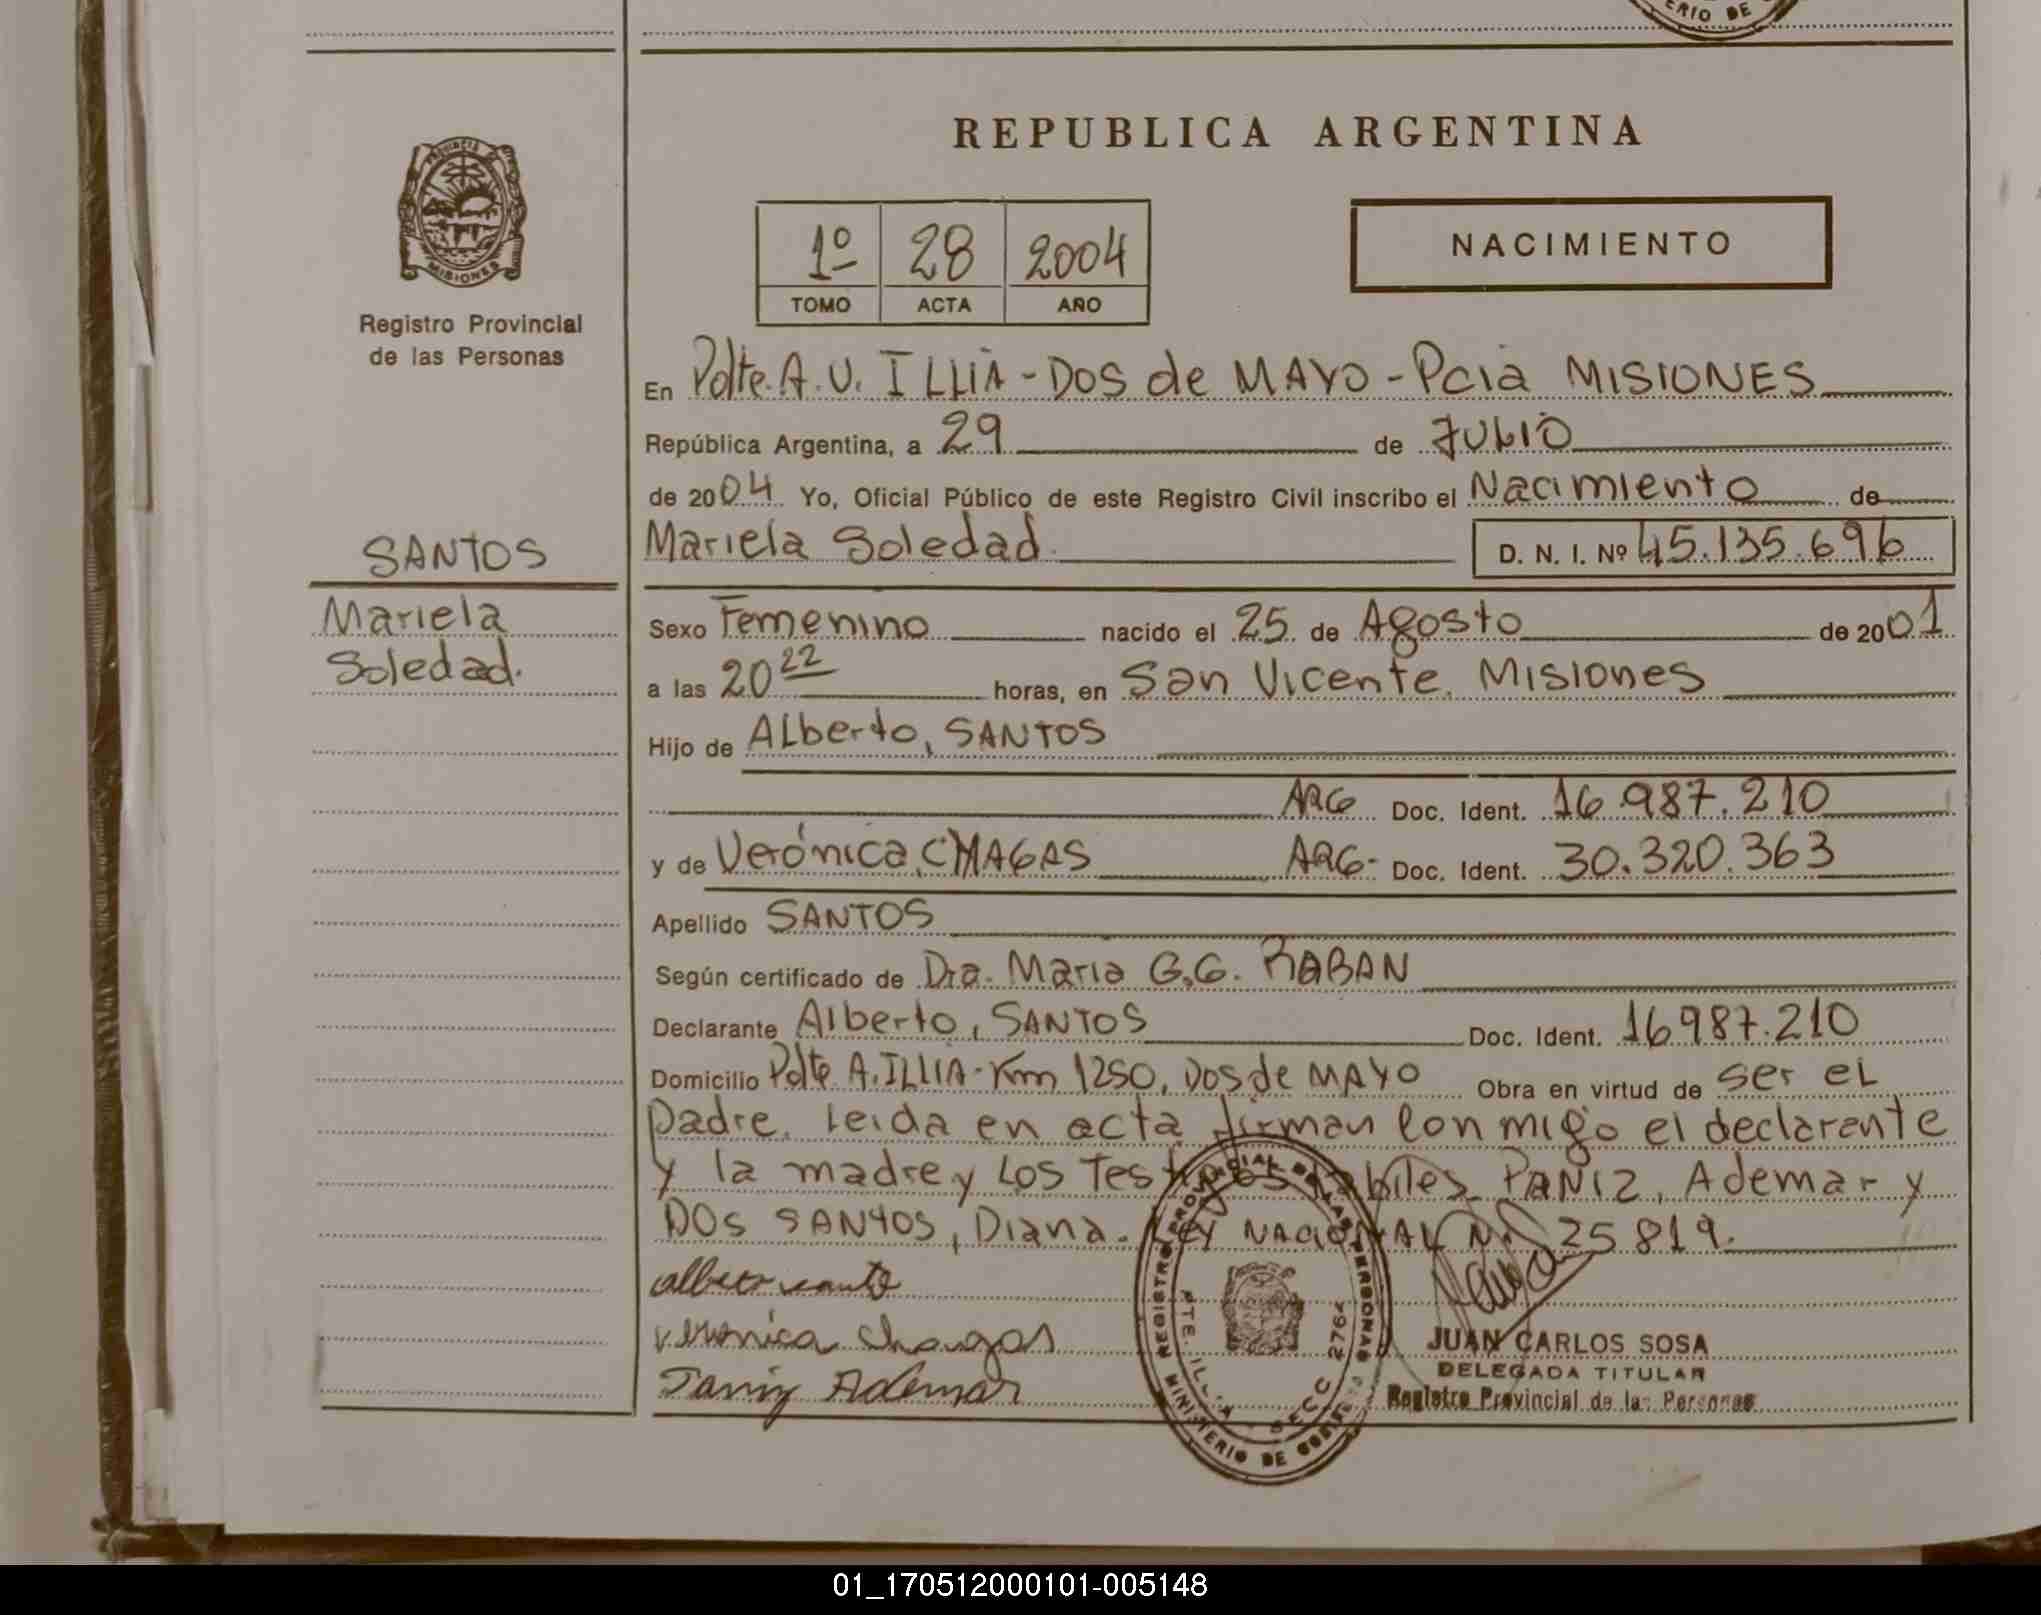 ERIO DE
REPUBLICA ARGENTINA
PROVINCIA DE
MISIONES
Registro Provincial
de las Personas
NACIMIENTO
1º 28 2004
TOMO ACTA AÑO
En Pdte. A. U. ILLIA - DOS de MAYO - Pcia MISIONES
República Argentina, a 29 de JULIO
de 2004 Yo, Oficial Público de este Registro Civil inscribo el Nacimiento de
Mariela Soledad. D. N. I. Nº 45.135.696
SANTOS
Mariela
Soledad.
Sexo Femenino nacido el 25 de Agosto de 2001
a las 20 22 horas, en San Vicente. Misiones
Hijo de Alberto, SANTOS
ARG Doc. Ident. 16.987.210
y de Verónica, CHAGAS ARG- Doc. Ident. 30.320.363
Apellido SANTOS
Según certificado de Dra. Maria G.G. RABAN
Declarante Alberto, SANTOS Doc. Ident. 16987.210
Domicilio Pdte A. ILLIA - Km 1250, Dos de MAYO Obra en virtud de ser el
padre. Leida en acta firman con migo el declarente
y la madre y Los Testigos habiles PANIZ, Ademar y
DOS SANTOS, Diana. LEY NACIONAL N. 25819.
veronica chagas
Paniz Ademar
REGISTRO PROVINCIAL DE LAS PERSONAS
MINISTERIO DE GOBIERNO
PTE. ILLIA - SECC 2767
JUAN CARLOS SOSA
DELEGADA TITULAR
Registro Provincial de las Personas
01_170512000101-005148